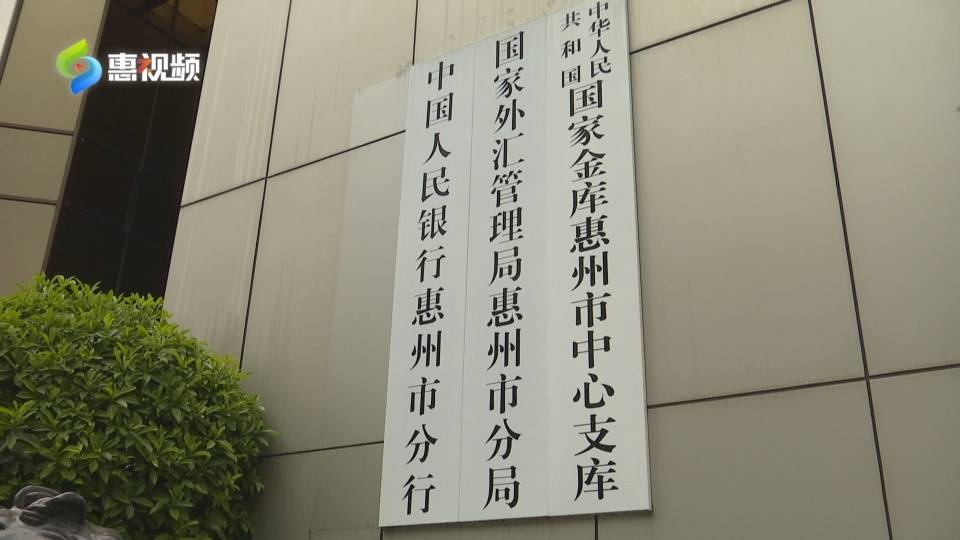 惠视频
中华人民共和国国家金库惠州市中心支库
国家外汇管理局惠州市分局
中国人民银行惠州市分行